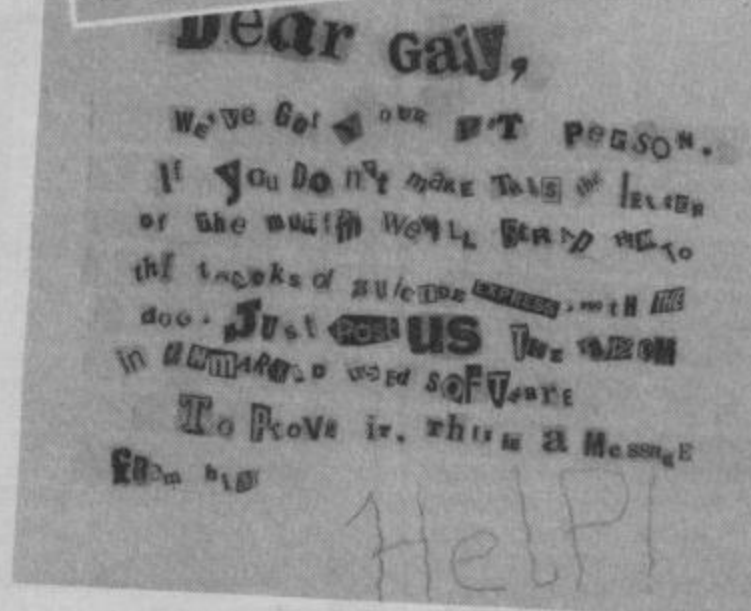 Dear Gary,
We've Got your PIT PERSON.
If You Do n't make This the letter
of the month We'll send him to
the tracks of suicide EXPRESS with THE
dog. Just POST US The ransom
in UNMARKED used SOFTWARE
To Prove it, this is a Message
from him
HelP!